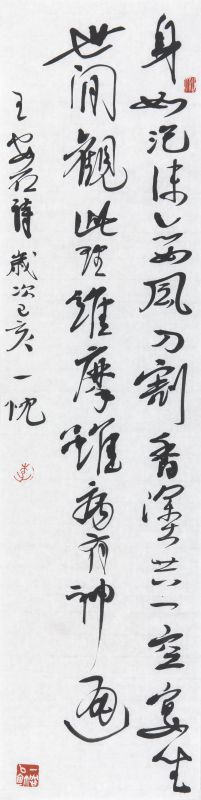 身如泡沫亦如風刀割香塗共一空宴坐
世間觀此理維摩雖病有神通
王安石詩歲次己亥一